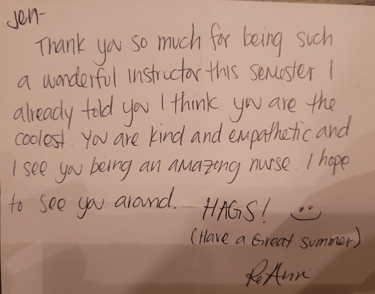 Jen-
Thank you so much for being such
a wonderful instructor this semester. I
already told you I think you are the
coolest. You are kind and empathetic and
I see you being an amazing nurse. I hope
to see you around. HAGS! :)
(Have a Great Summer)
ReAnn